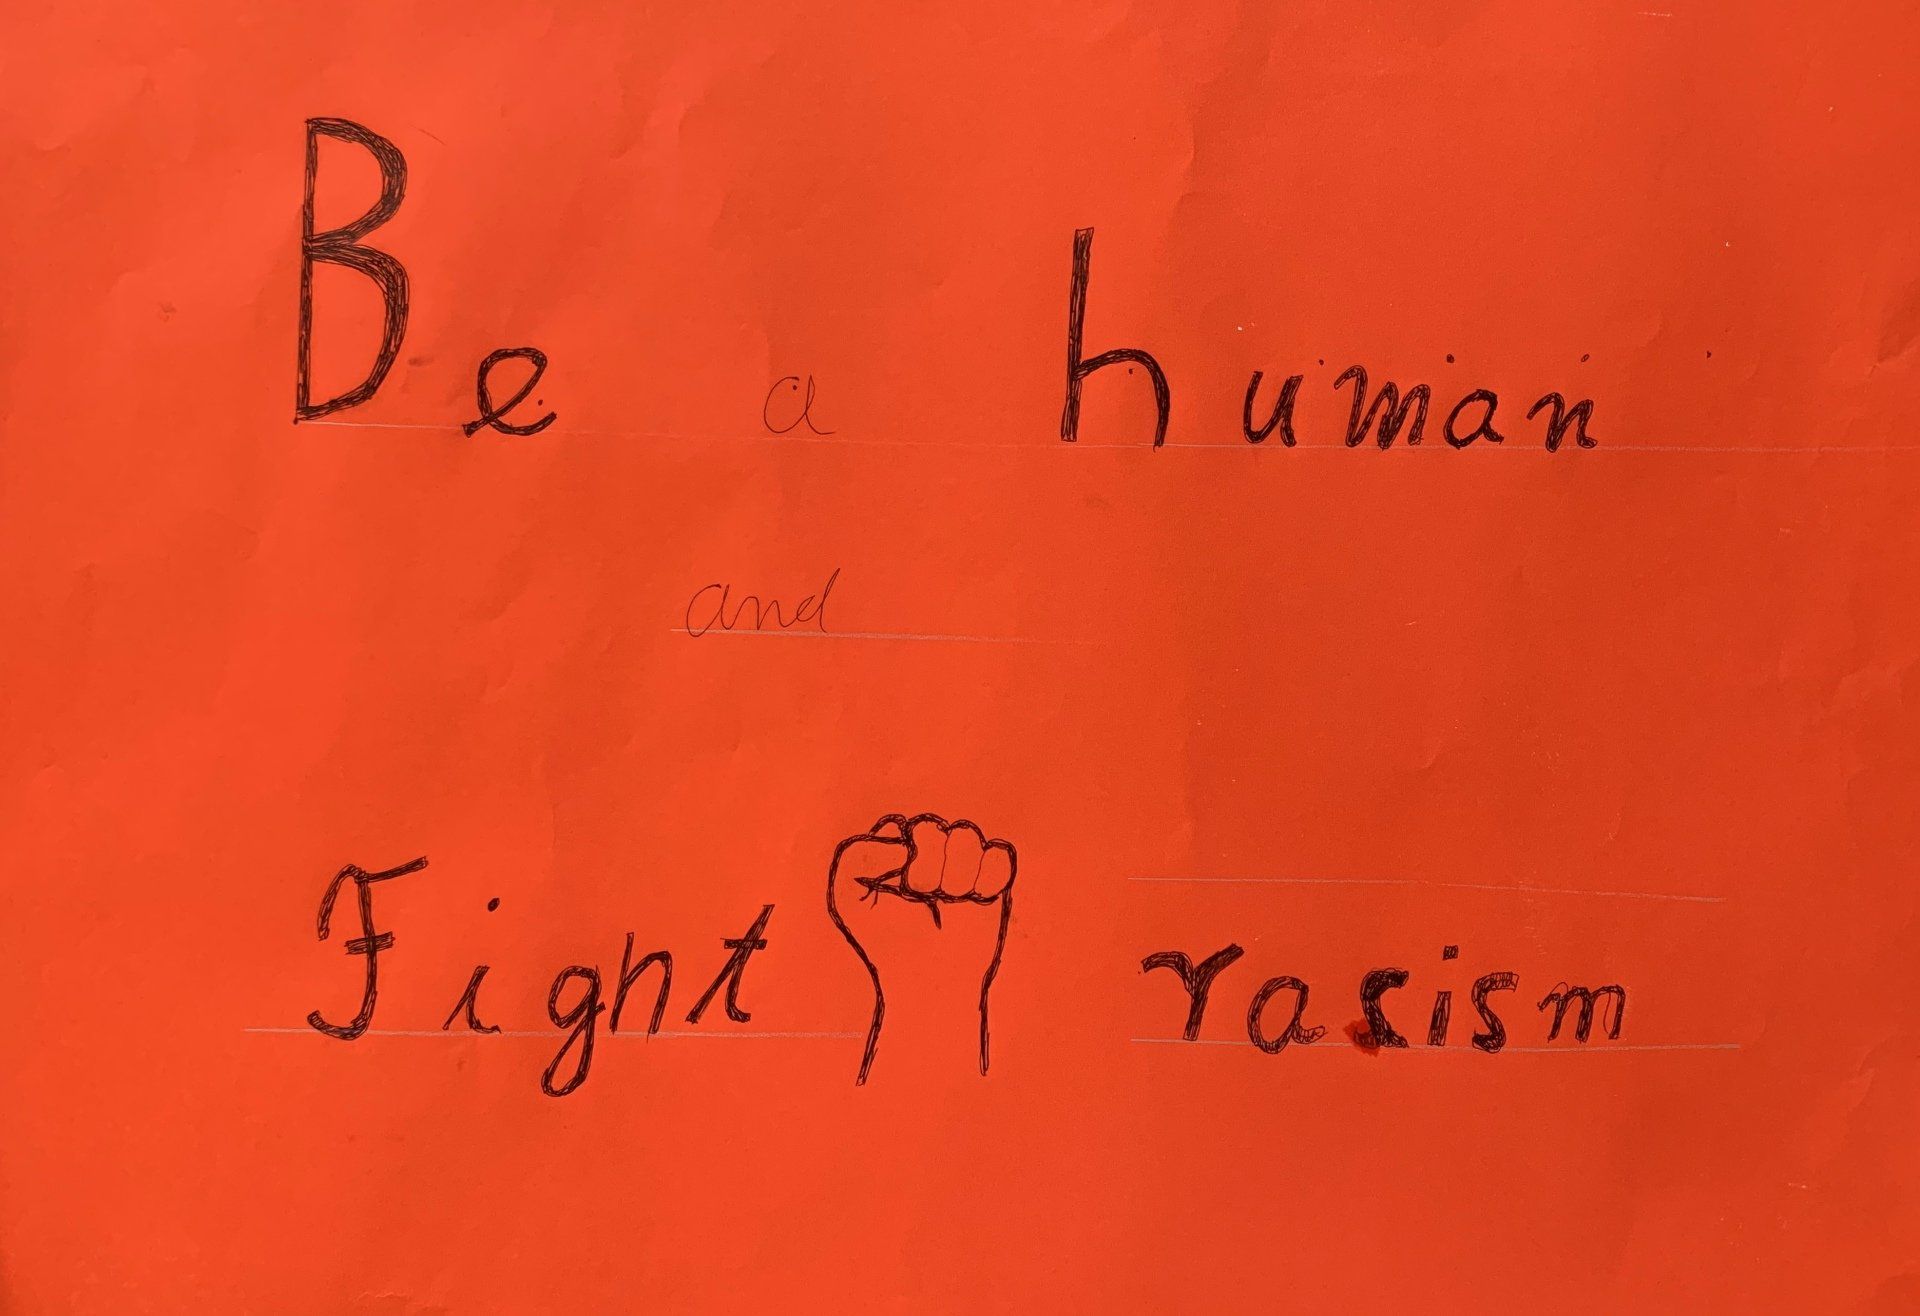 Be a human
and
Fight racism